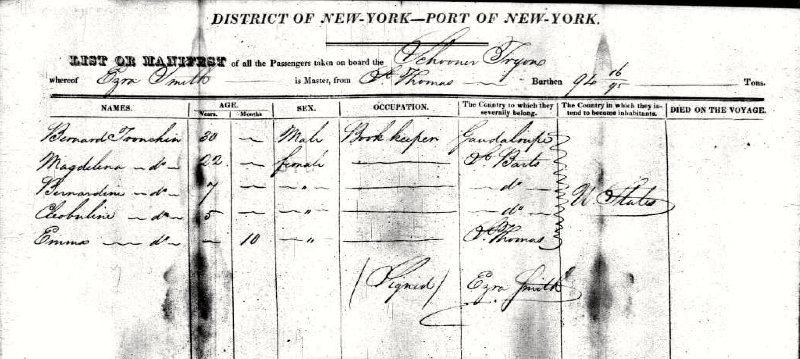 DISTRICT OF NEW-YORK—PORT OF NEW-YORK.
LIST OR MANIFEST of all the Passengers taken on board the Schooner Tryon
whereof Ezra Smith is Master, from St Thomas Burthen 94 16/95 Tons.
NAMES. AGE. Years. Months SEX. OCCUPATION. The Country to which they severally belong. The Country in which they intend to become inhabitants. DIED ON THE VOYAGE.
Bernard Tronchin 30 — Male Book keeper Guadaloupe
Magdelena — do — 22 — female — St Barts
Bernardine — do — 7 — " — — do — U States
Cleobuline — do — 5 — " — — do —
Emma — do — — 10 — " — — St Thomas
(Signed) Ezra Smith